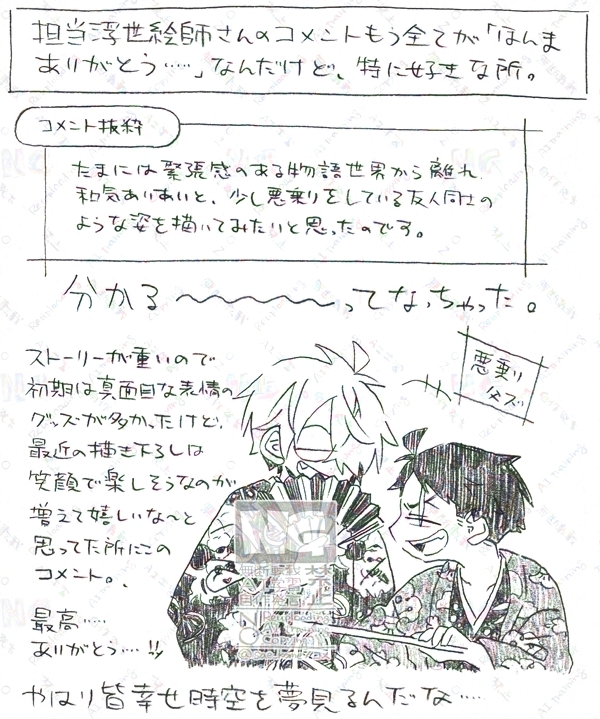 担当浮世絵師さんのコメントもう全てが「ほんま
ありがとう……」なんだけど、特に好きな所。
コメント抜粋
たまには緊張感のある物語世界から離れ、
和気あいあいと、少し悪乗りをしている友人同士の
ような姿を描いてみたいと思ったのです。
分かる〜〜〜〜ってなっちゃった。
悪乗り
父ズ
ストーリーが重いので
初期は真面目な表情の
グッズが多かったけど、
最近の描き下ろしは
笑顔で楽しそうなのが
増えて嬉しいな〜と
思ってた所にこの
コメント。、
最高……
ありがとう…!!
無断転載
禁止
やはり皆幸せ時空を夢見るんだな……